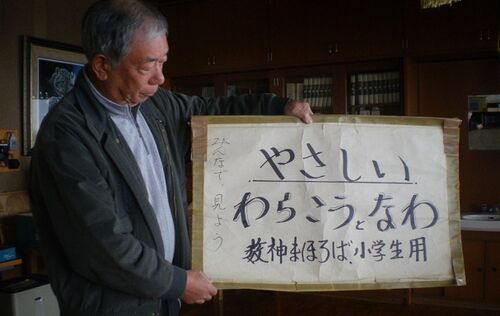 みんなで、見よう
やさしい
わらこうとなわ
教神まほろば、小学生用